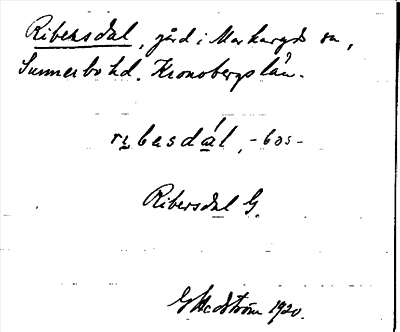 Ribersdal, gård i Markaryds sn,
Sunnerbo hd. Kronobergs län.
rɩbasdál, -bos-
Ribersdal G.
G Hedström 1920.